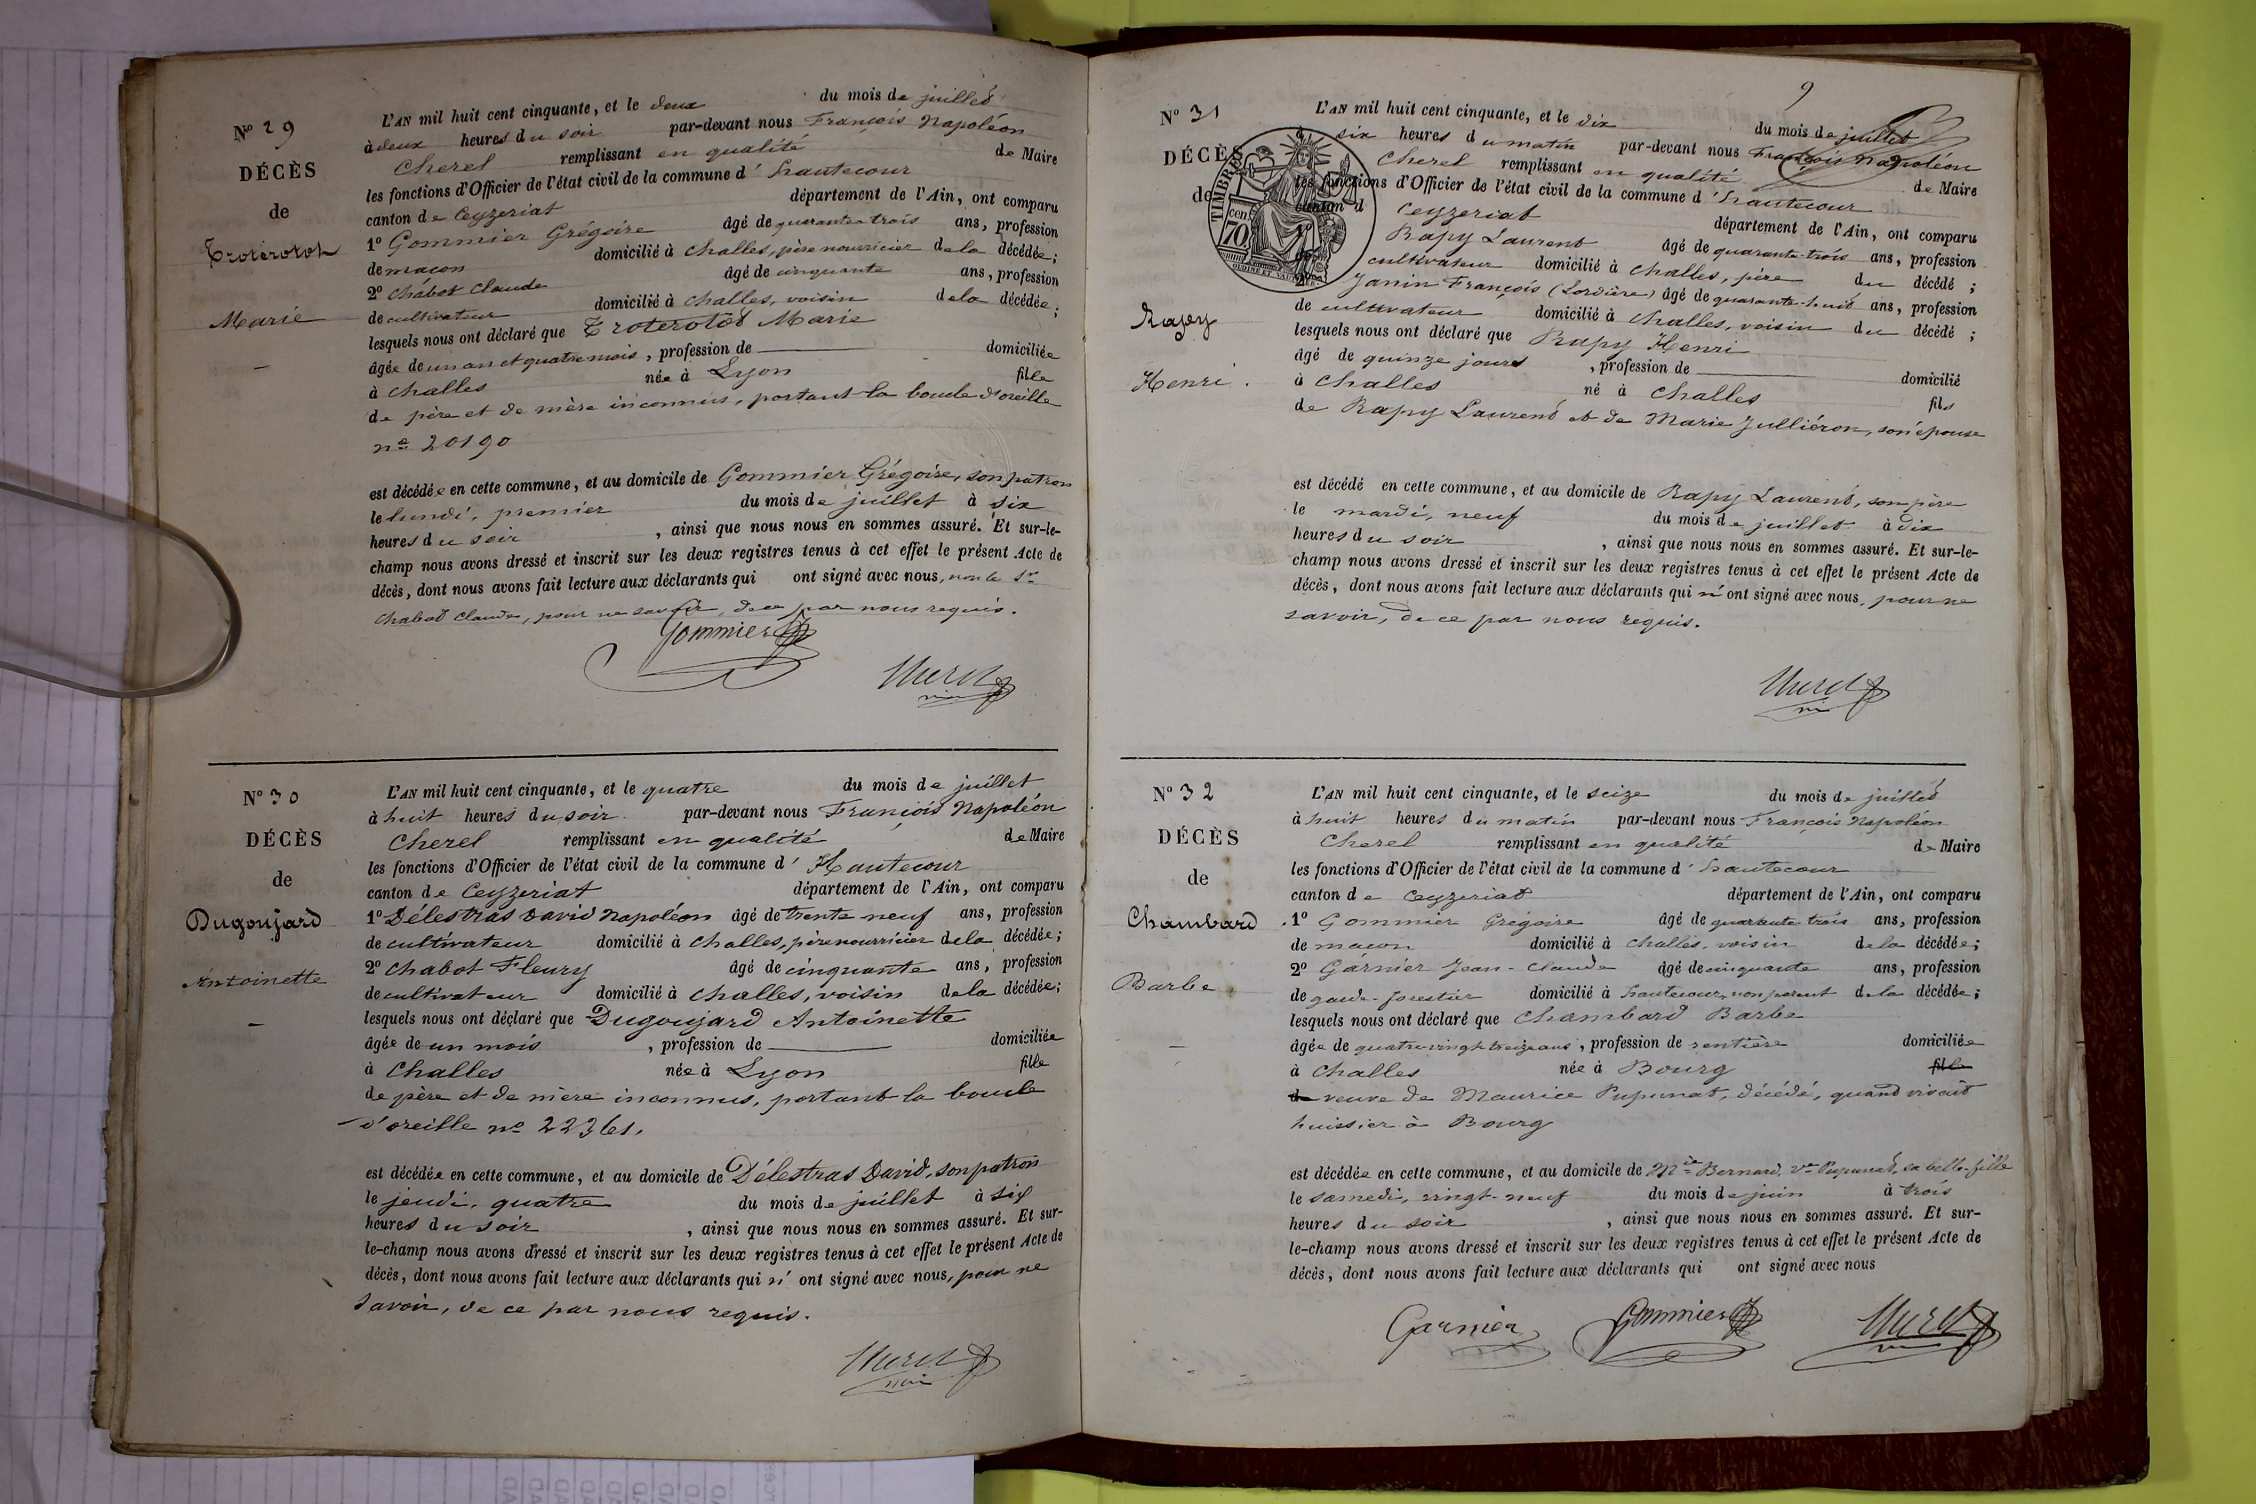 N° 29
DÉCÈS
de
Troterotot
Marie
L'AN mil huit cent cinquante, et le deux du mois de juillet
à deux heures du soir par-devant nous François Napoléon
Cherel remplissant en qualité de Maire
les fonctions d'Officier de l'état civil de la commune d' hautecour
canton de Ceyzeriat département de l'Ain, ont comparu
1° Gommier Grégoire âgé de quarante-trois ans, profession
de maçon domicilié à Challes, père nourricier de la décédée;
2° Chabot Claude âgé de cinquante ans, profession
de cultivateur domicilié à Challes, voisin de la décédée;
lesquels nous ont déclaré que Troterotot Marie
âgée de un an et quatre mois, profession de domiciliée
à Challes née à Lyon fille
de père et de mère inconnus, portant la boucle d'oreille
n° 20190
est décédée en cette commune, et au domicile de Gommier Grégoire, son patron
le lundi, premier du mois de juillet à six
heures du soir, ainsi que nous nous en sommes assuré. Et sur-le-
champ nous avons dressé et inscrit sur les deux registres tenus à cet effet le présent Acte de
décès, dont nous avons fait lecture aux déclarants qui ont signé avec nous, non le Sr
Chabot Claude, pour ne savoir, de ce par nous requis.
Gommier
N° 30
DÉCÈS
de
Dugoujard
Antoinette
L'AN mil huit cent cinquante, et le quatre du mois de juillet
à huit heures du soir par-devant nous François Napoléon
Cherel remplissant en qualité de Maire
les fonctions d'Officier de l'état civil de la commune d' Hautecour
canton de Ceyzeriat département de l'Ain, ont comparu
1° Délestras David Napoléon âgé de trente neuf ans, profession
de cultivateur domicilié à Challes, père nourricier de la décédée;
2° Chabot Fleury âgé de cinquante ans, profession
de cultivateur domicilié à Challes, voisin de la décédée;
lesquels nous ont déclaré que Dugoujard Antoinette
âgée de un mois, profession de domiciliée
à Challes née à Lyon fille
de père et de mère inconnus, portant la boucle
d'oreille n° 22361.
est décédée en cette commune, et au domicile de Délestras David, son patron
le jeudi, quatre du mois de juillet à six
heures du soir, ainsi que nous nous en sommes assuré. Et sur-
le-champ nous avons dressé et inscrit sur les deux registres tenus à cet effet le présent Acte de
décès, dont nous avons fait lecture aux déclarants qui n' ont signé avec nous, pour ne
savoir, de ce par nous requis.
9
N° 31
DÉCÈS
de
Rapy
Henri.
TIMBRE
cen.
70
L'AN mil huit cent cinquante, et le dix du mois de juillet
six heures du matin par-devant nous François Napoléon
Cherel remplissant en qualité de Maire
les fonctions d'Officier de l'état civil de la commune d' hautecour
canton d Ceyzeriat département de l'Ain, ont comparu
Rapy Laurent âgé de quarante-trois ans, profession
cultivateur domicilié à Challes, père du décédé;
Janin François (Lordière) âgé de quarante-huit ans, profession
de cultivateur domicilié à Challes, voisin du décédé;
lesquels nous ont déclaré que Rapy Henri
âgé de quinze jours, profession de domicilié
à Challes né à Challes fils
de Rapy Laurent et de Marie Julliéron, son épouse
est décédé en cette commune, et au domicile de Rapy Laurent, son père
le mardi, neuf du mois de juillet à dix
heures du soir, ainsi que nous nous en sommes assuré. Et sur-le-
champ nous avons dressé et inscrit sur les deux registres tenus à cet effet le présent Acte de
décès, dont nous avons fait lecture aux déclarants qui n' ont signé avec nous, pour ne
savoir, de ce par nous requis.
N° 32
DÉCÈS
de
Chambard
Barbe
L'AN mil huit cent cinquante, et le seize du mois de juillet
à huit heures du matin par-devant nous François Napoléon
Cherel remplissant en qualité de Maire
les fonctions d'Officier de l'état civil de la commune d' hautecour
canton de Ceyzeriat département de l'Ain, ont comparu
1° Gommier Grégoire âgé de quarante-trois ans, profession
de maçon domicilié à Challes, voisin de la décédée;
2° Garnier Jean-Claude âgé de cinquante ans, profession
de garde-forestier domicilié à hautecour, non parent de la décédée;
lesquels nous ont déclaré que Chambard Barbe
âgée de quatre-vingt-treize ans, profession de rentière domiciliée
à Challes née à Bourg fille
d veuve de Maurice Pupunat, décédé, quand vivait
huissier à Bourg
est décédée en cette commune, et au domicile de Mie Bernard, Ve Pupunat, sa belle-fille
le samedi, vingt-neuf du mois de juin à trois
heures du soir, ainsi que nous nous en sommes assuré. Et sur-
le-champ nous avons dressé et inscrit sur les deux registres tenus à cet effet le présent Acte de
décès, dont nous avons fait lecture aux déclarants qui ont signé avec nous
Garnier Gommier